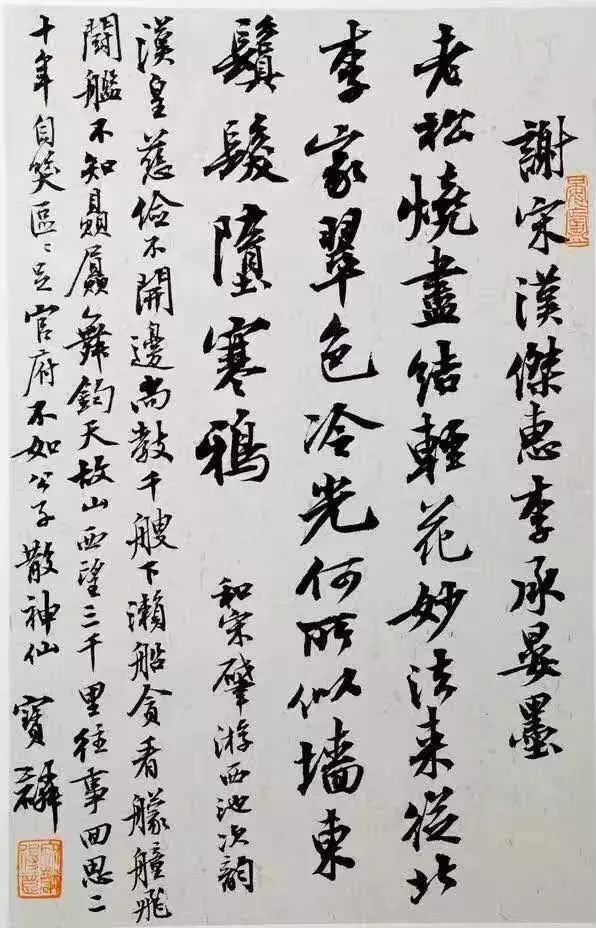 謝宋漢傑惠李承晏墨
老松燒盡結輕花妙法來從北
李家翠色冷光何所似墻東
鬒髮墮寒鴉
和宋肇游西池次韵
漢皇慈儉不開邊尚教千艘下瀨船貪看艨艟飛
鬪艦不知贔屭舞鈞天故山西望三千里往事回思二
十年自笑區〻足官府不如公子散神仙 寶麟